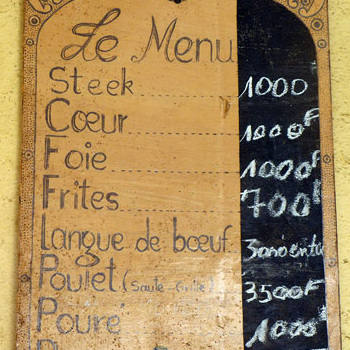 Le Menu
Steek 1000
Cœur 1000F
Foie 1000F
Frites 700F
Langue de bœuf
Poulet (Saute Grillé) 3500F
Pouré 1000F